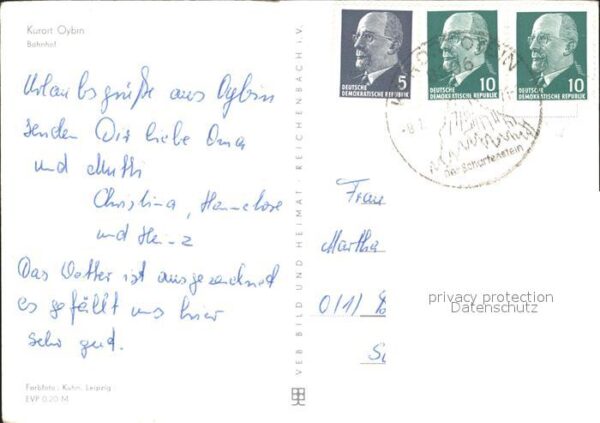 Kurort Oybin
Bahnhof
Urlaubsgrüße aus Oybin
senden Dir liebe Oma
und Mutti
Christina, Hannelose
und Heinz
Das Wetter ist ausgezeichnet
es gefällt uns hier
sehr gut.
Farbfoto: Kuhn, Leipzig
EVP 0,20 M
VEB BILD UND HEIMAT · REICHENBACH i. V.
5
DEUTSCHE
DEMOKRATISCHE REPUBLIK
10
DEUTSCHE
DEMOKRATISCHE REPUBLIK
10
DEUTSCHE
DEMOKRATISCHE REPUBLIK
KURORT OYBIN
Der Scharfenstein
Frau
Martha
privacy protection
Datenschutz